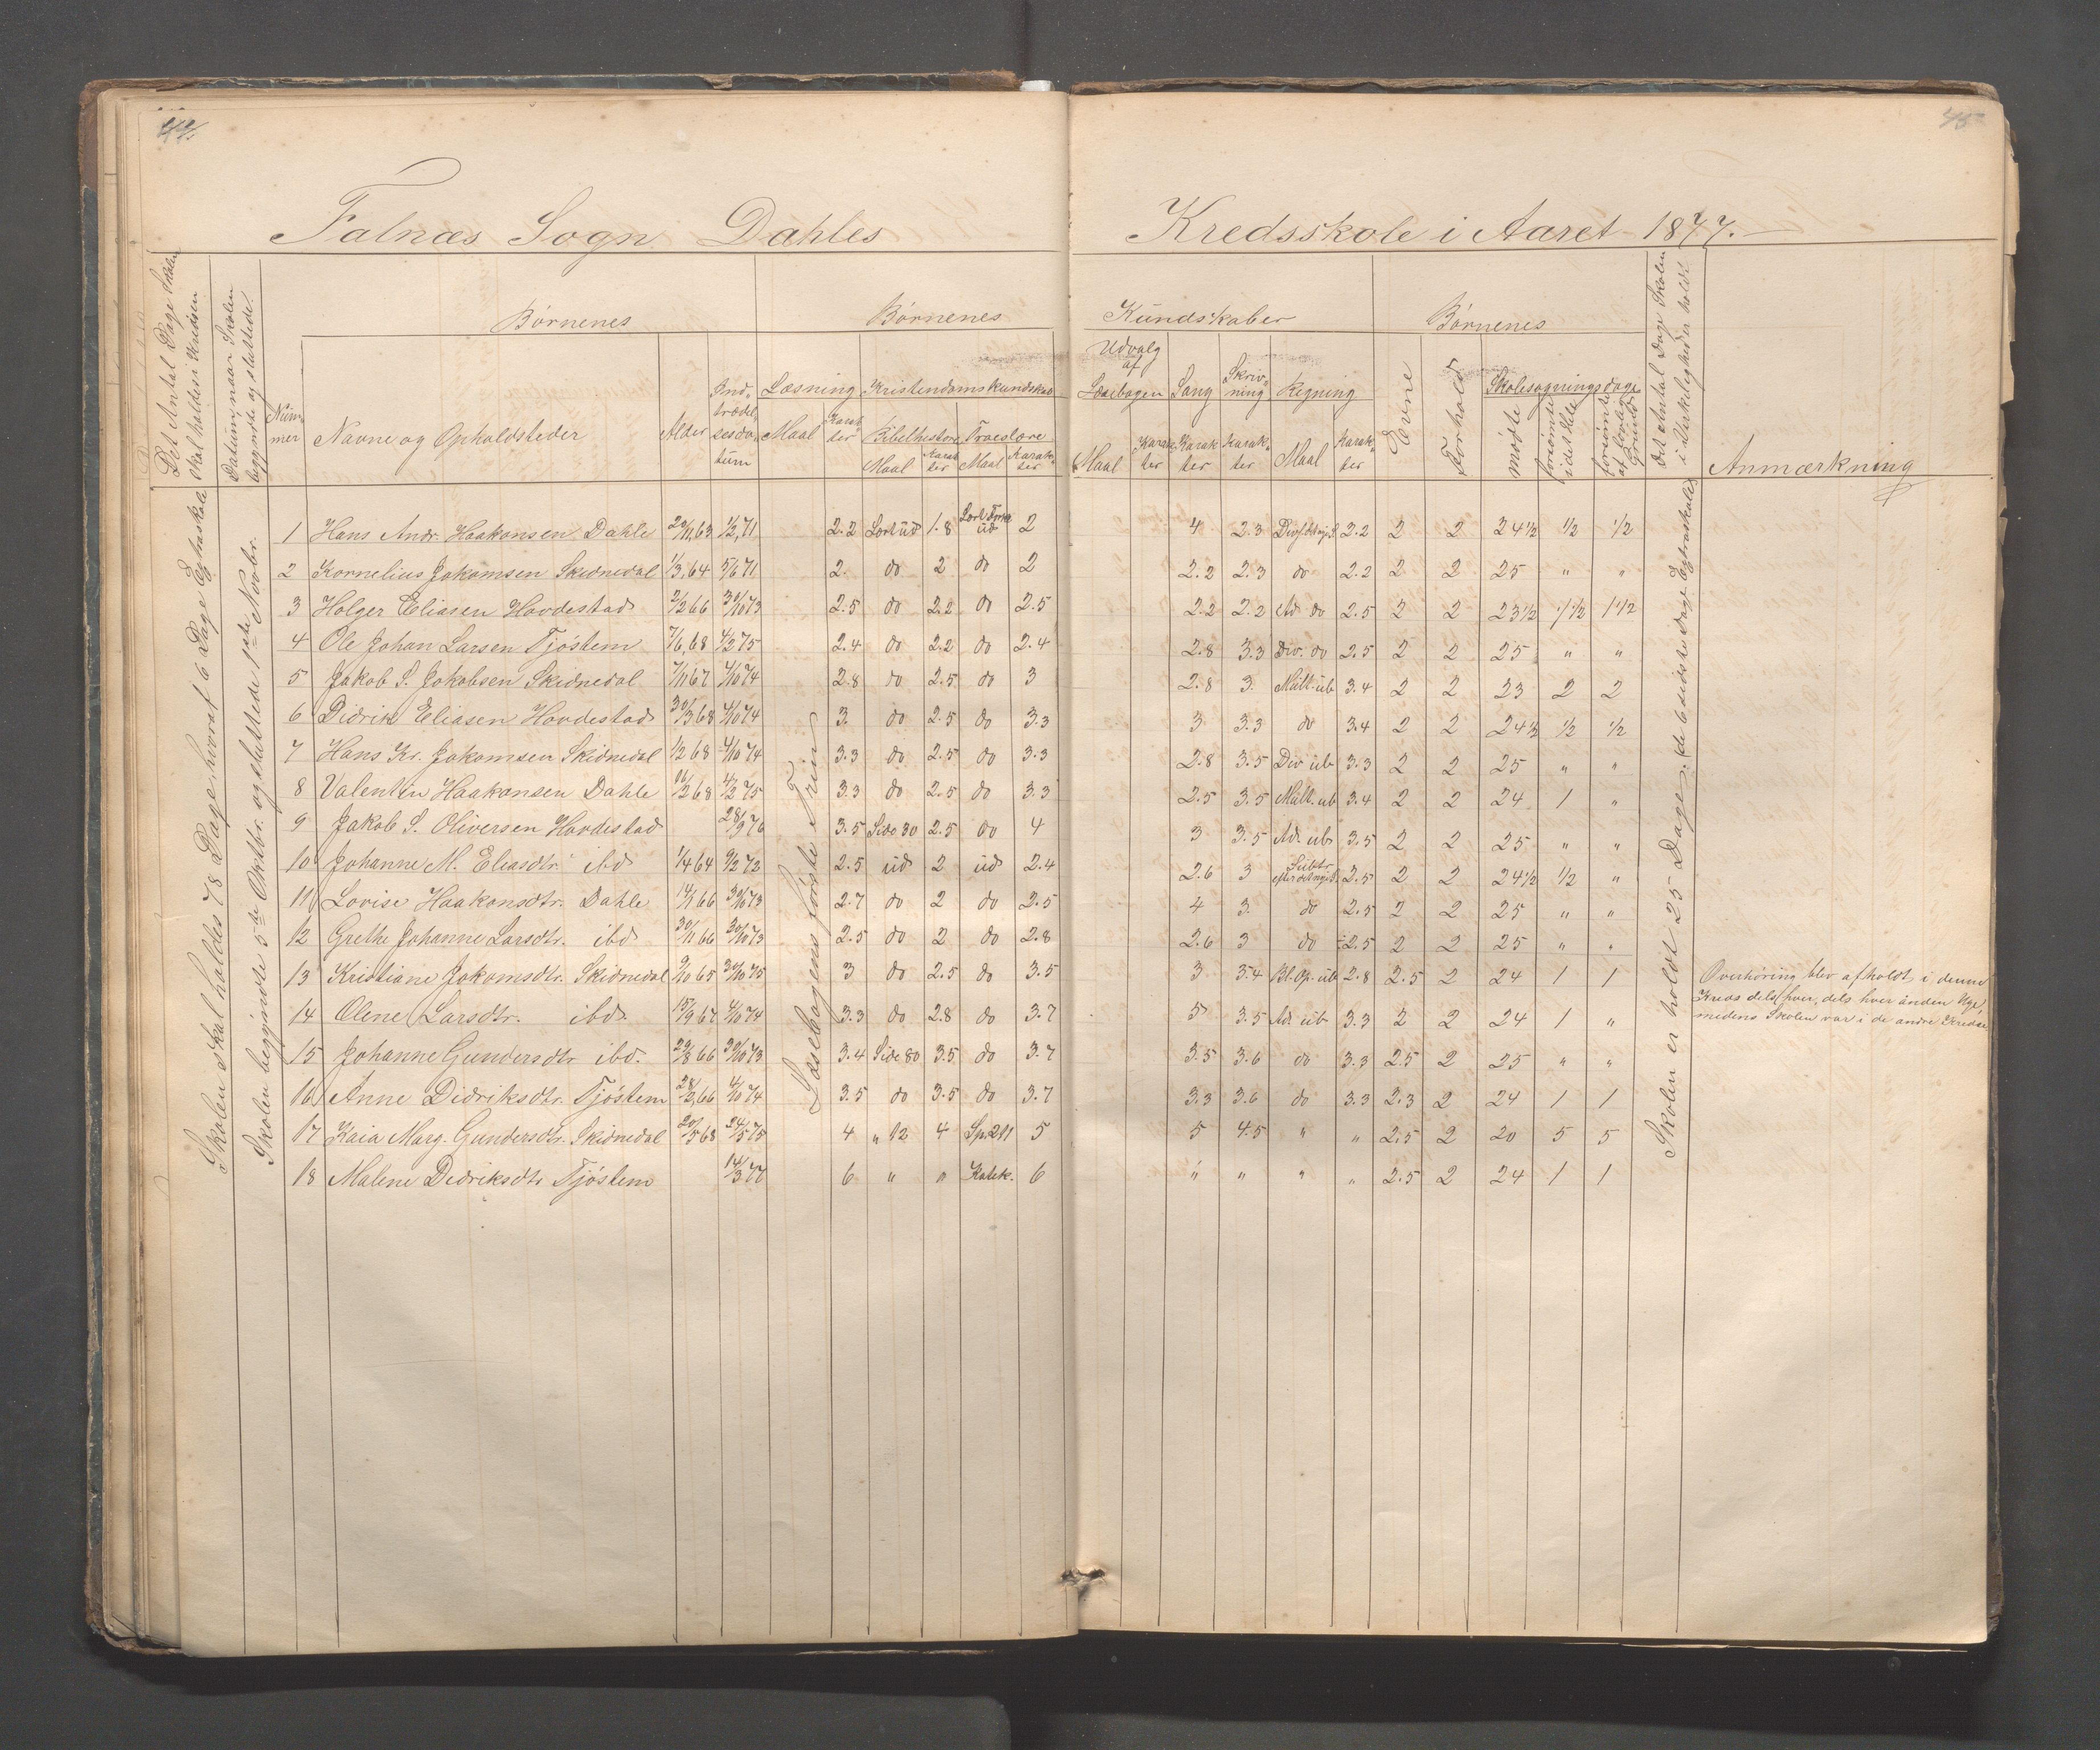 44.
45
Falnæs Sogn Dahles Kredsskole i Aaret 1877.
Det Antal Dage Skolen skal holdes i Kredsen
Datum, naar Skolen begyndte og sluttede.
Nummer
Børnenes
Navne og Opholdsteder
Alder
Indtrædelsesdatum
Børnenes Kundskaber
Læsning
Maal
Karakter
Kristendomskundskab
Bibelhistorie
Maal
Karakter
Troeslære
Maal
Karakter
Udvalg af Læsebogen
Maal
Karakter
Sang
Karakter
Skrivning
Karakter
Regning
Maal
Karakter
Børnenes
Evne
Forhold
Skolesøgningsdage
mødte
forsømte i det Hele
forsømte af lovlig Grund
Det Antal Dage Skolen i Virkeligheden holdt
Anmærkning
Skolen skal holdes 78 Dage, hvoraf 6 Dage Extraskole
Skolen begyndte 5te Oktbr. og sluttede 1ste Novbr.
Læsebogens første Trin
1 Hans Andr. Haakonsen Dahle 20/11,63 1/2,71 2.2 Lært ud 1.8 2 4 2.3 2.2 2 2 24 1/2 1/2 1/2
2 Kornelius Jakomsen Skidnedal 1/3,64 5/6 71 2. do 2 do 2 2.2 2.3 do 2.2 2 2 25 " "
3 Holger Eliasen Hovdestad 2/2 66 30/10 73 2.5 do 2.2 do 2.5 2.2 2.2 Ad. do 2.5 2 2 23 1/2 1 1/2 1 1/2
4 Ole Johan Larsen Tjøstem 7/1,68 4/2 75 2.4 do 2.2 do 2.4 2.8 3.3 Div. do 2.5 2 2 25 " "
5 Jakob S. Jakobsen Skidnedal 7/11 67 4/10 74 2.8 do 2.5 do 3 2.8 3. Mult. ub 3.4 2 2 23 2 2
6 Didrik Eliasen Hovdestad 30/3 68 4/10 74 3. do 2.5 do 3.3 3 3.3 do 3.4 2 2 24 1/2 1/2 1/2
7 Hans Kr. Jakomsen Skidnedal 1/2 68 4/10 74 3.3 do 2.5 do 3.3 2.8 3.5 Div ub 3.3 2 2 25 " "
8 Valentin Haakonsen Dahle 16/2 68 4/2 75 3.3 do 2.5 do 3.3 2.5 3.5 Mult. ub 3.4 2 2 24 1 "
9 Jakob S. Oliversen Hovdestad 28/9 76 3.5 Side 30 2.5 do 4 3 3.5 Ad. ub 3.5 2 2 25 " "
10 Johanne M. Eliasdtr. ibd 1/4 64 9/2 72 2.5 ud 2 ud 2.4 2.6 3 Subtr. 2.5 2 2 24 1/2 1/2 "
11 Lovise Haakonsdtr. Dahle 14/1 66 30/10 73 2.7 do 2 do 2.5 4 3. do 2.5 2 2 25 " "
12 Grethe Johanne Larsdtr. ibd 30/11 66 30/10 73 2.5 do 2 do 2.8 2.6 3 do 2.5 2 2 25 " "
13 Kristiane Jakomsdtr. Skidnedal 9/10 65 30/10 75 3 do 2.5 do 3.5 3 3.4 Bl. Op. ub 2.8 2.5 2 24 1 1
14 Olene Larsdtr. ibd. 15/9 67 4/10 74 3.3 do 2.8 do 3.7 5 3.5 Ad. ub 3.3 2 2 24 1 "
15 Johanne Gundersdtr ibd. 29/8 66 30/10 73 3.4 Side 80 3.5 do 3.7 3.5 3.6 do 3.3 2.5 2 25 " "
16 Anne Didriksdtr. Tjøstem 28/3,66 4/10 74 3.5 do 3.5 do 3.7 3.3 3.6 do 3.3 2.3 2 24 1 1
17 Kaia Marg. Gundersdtr. Skidnedal 20/5 68 24/5 75 4 " 12 4 Sp. 211 5 5 4.5 " " 2.5 2 20 5 5
18 Malene Didriksdtr Tjøstem 14/3 77 6 " " Katek. 6 " " " " 2.5 2 24 1 1
Skolen er holdt 25 Dage, de 6 sidste Dage Extraskole
Overhøring blev afholdt i denne
Kreds dels hver, dels hver anden Uge,
medens Skolen var i de andre Kredse